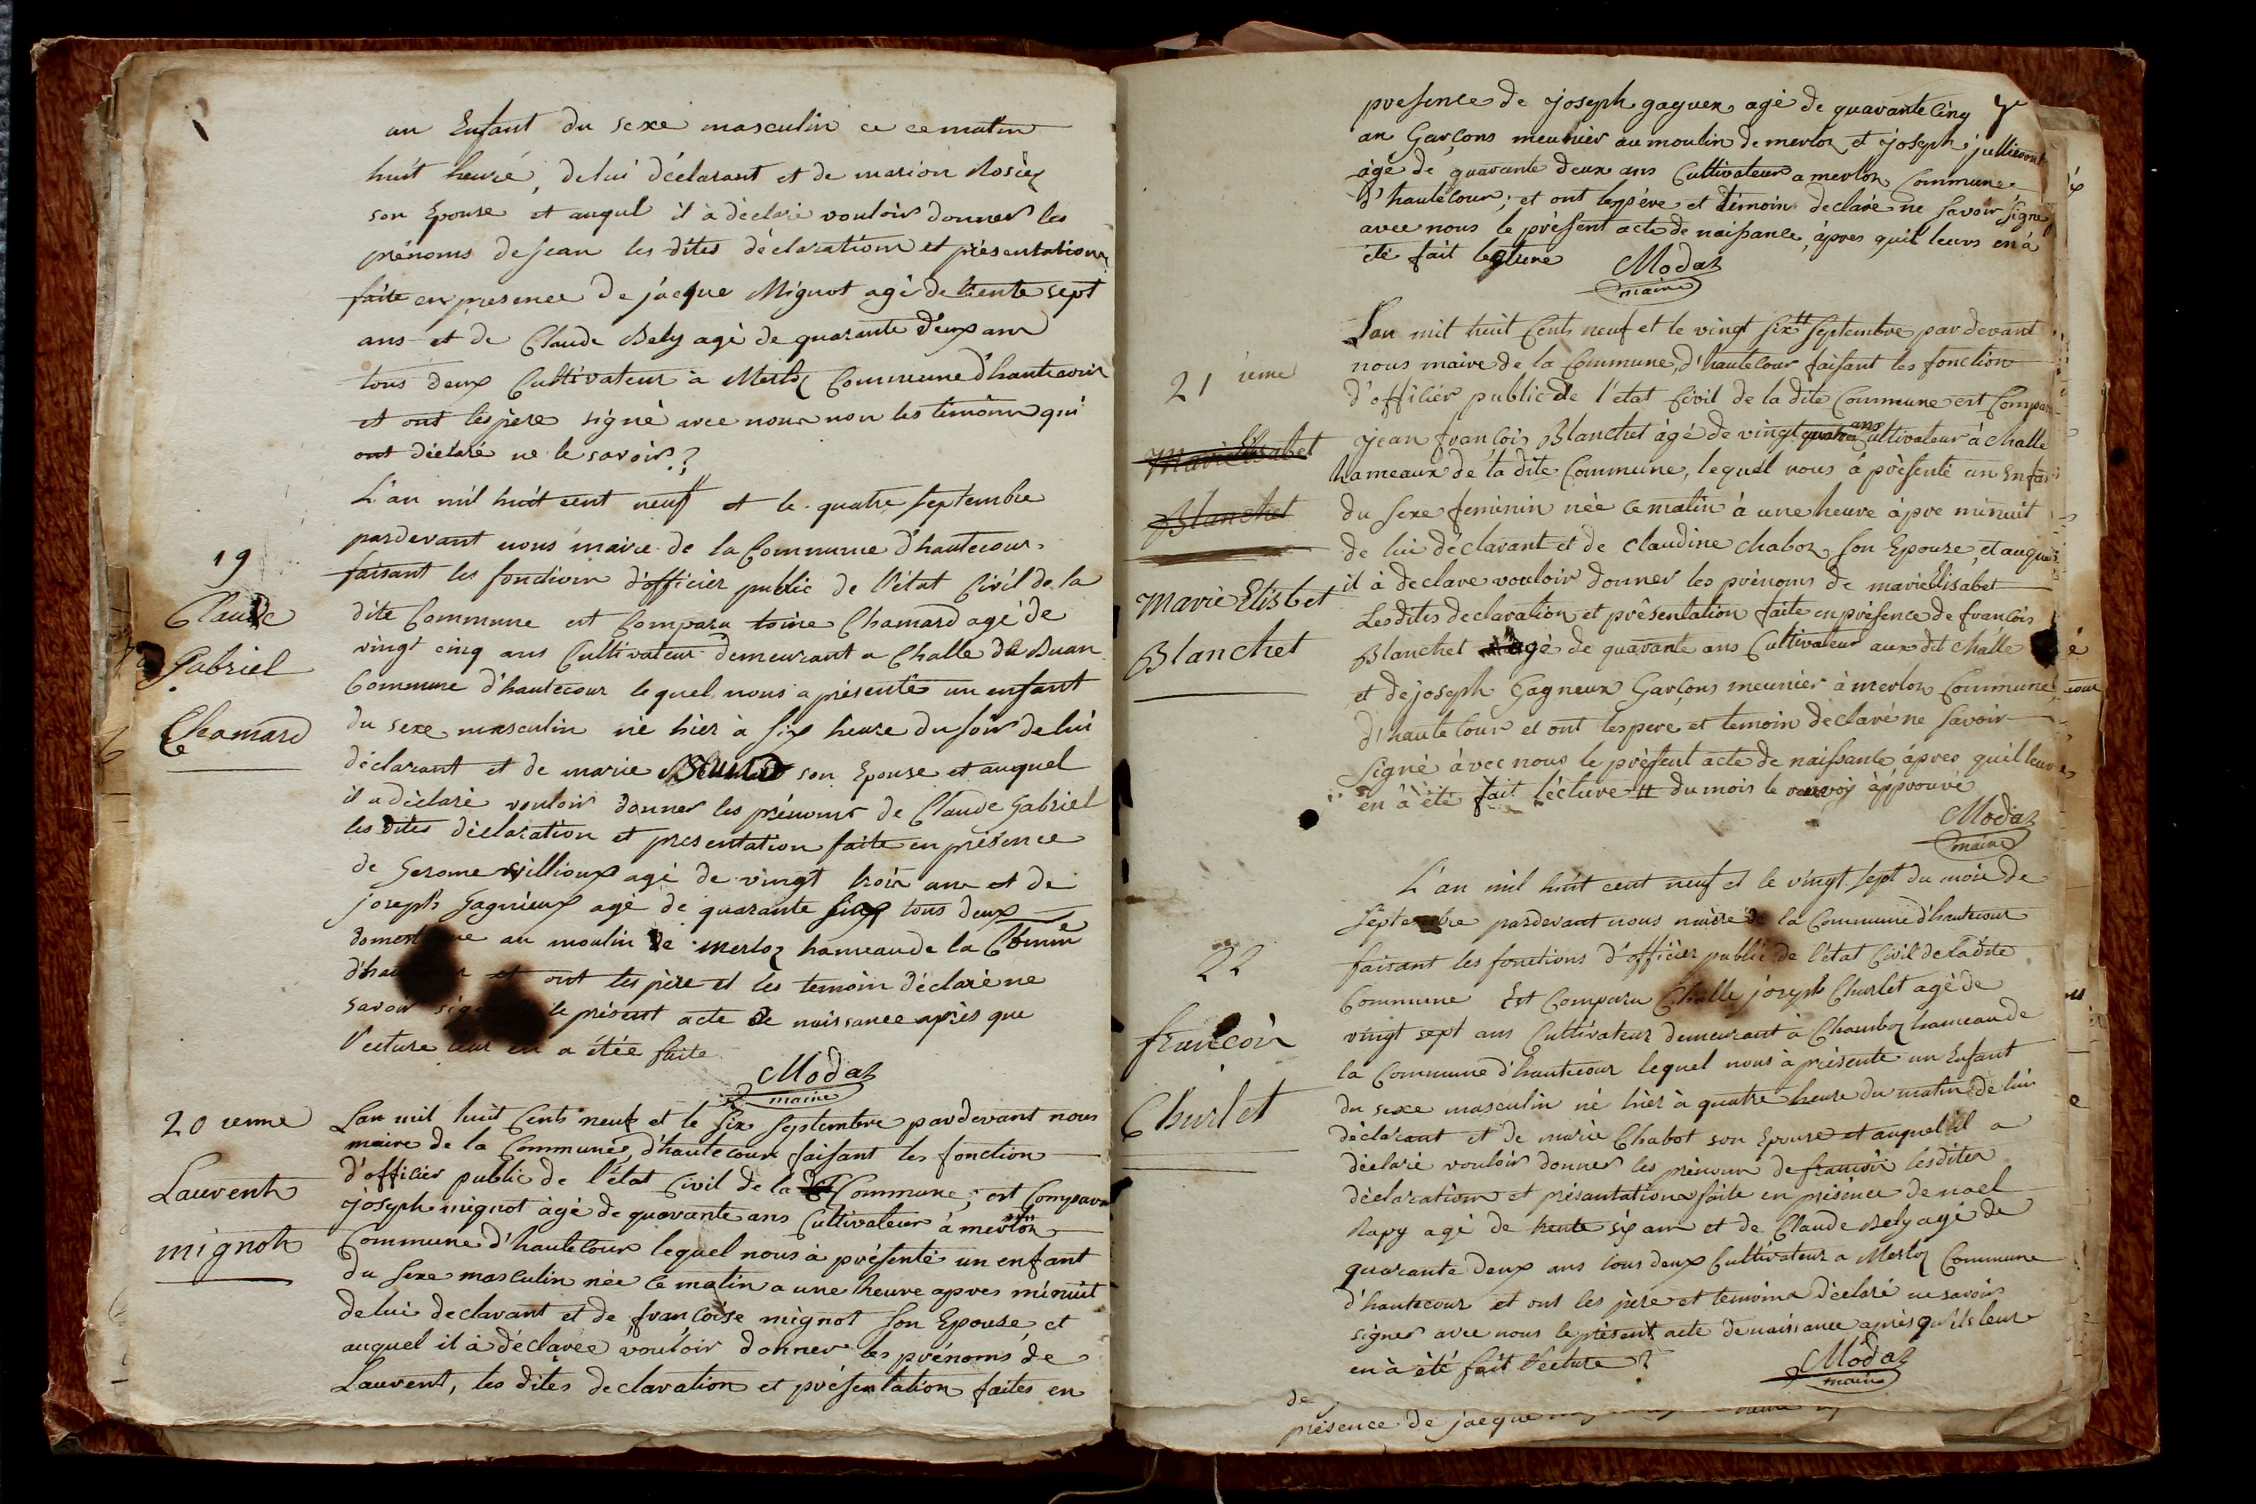 un Enfant du sexe masculin ce ce matin
huit heure, de lui déclarant et de marion Rosier
son Epouse et auquel il à déclaré vouloir donner les
prénoms de jean les dites déclaration et présentation
faite en présence de jacque Mignot agé de trente sept
ans et de Claude Bely agé de quarante deux ans
tous deux Cultivateur à Merloz Commune d'hautecour
et ont les père signé avec nous non les témoins qui
ont déclaré ne le savoir
L'an mil huit cent neuf et le quatre septembre
pardevant nous maire de la Commune d'hautecour
faisant les fonctions d'officier public de l'état Civil de la
dite Commune est Comparu Chamard agé de
vingt cinq ans Cultivateur demeurant a Challe
Commune d'hautecour lequel nous a présenté un enfant
du sexe masculin né hier à six heure du soir de lui
déclarant et de marie son Epouse et auquel
il a déclaré vouloir donner les prénoms de Claude Gabriel
les dites déclaration et presentation faite en présence
de Gerome villioux agé de vingt trois ans et de
joseph Gagnieux agé de quarante cinq tous deux
au moulin de Merloz hameau de la Comune
et ont les père et les temoin déclaré ne
savoir le présent acte de naissance après que
l'ecture leur en a étée faite
Modaz
maire
19
Claude
Gabriel
Chamard
20 ieme
Laurent
mignot
Lan mil huit Cents neuf et le six septembre pardevant nous
maire de la Commune, d'hautecour faisant les fonction
d'officier public de l'état Civil de la Commune; est Comparu
joseph mignot àgé de quarante ans Cultivateur à merloz
Commune d'hautecour lequel nous à présenté un enfant
du sexe masculin née ce matin a une heure apres minuit
de lui declarant et de françoise mignot son Epouse et
auquel il à déclarée vouloir donner les prénoms de
Laurent, les dites declaration et présentation faites en
presence de joseph gagneux agé de quarante cinq
an Garçons meunier au moulin de merloz et joseph jullieront
agé de quarante deux ans Cultivateur a merloz Commune
d'hautecour; et ont les père et témoin declaré ne savoir signe
avec nous le présent acte de naissance, àpres quil leurs en à
été fait lecture
Modaz
maire
21 ieme
Marie Elisabet
Blanchet
Marie Elisbet
Blanchet
Lan mil huit Cents neuf et le vingt six tt septembre pardevant
nous maire de la Commune, d'hautecour faisant les fonction
d'officier public de l'état Civil de la dite Commune est Compar
jean françois Blanchet àgé de vingt quatre ans Cultivateur à challe
hameaux de la dite Commune, lequel nous à présenté un Enfan
du sexe feminin née ce matin à une heure àpre minuit
de lui déclarant et de Claudine chaboz son Epouze, et auquel
il à declare vouloir donner les prénoms de marie Elisabet
Les dites declaration et présentation faite en présence de françois
Blanchet àgé de quarante ans Cultivateur aux dit challe
et de joseph Gagneux Garçons meunier à merloz Commune
d'hautecour et ont les pere, et temoin declaré ne savoir
signé àvec nous le présent acte de naissance àpres quil leurs
en à été fait lécture tt du mois le renvoy àpprouvé
Modaz
maire
22
françois
Churlet
L'an mil huit cent neuf et le vingt sept du mois de
septembre pardevant nous maire de la Commune d'hautecour
faisant les fonctions d'officier public de l'état Civil de la dite
Commune Est Comparu Challe joseph Churlet agé de
vingt sept ans Cultivateur demeurant à Chamboz hameau de
la Commune d'hautecour lequel nous à présente un Enfant
du sexe masculin né hier à quatre heure du matin de lui
déclarant et de marie Chabot son Epouse et auquel il a
déclaré vouloir donner les prénoms de françois les dites
déclaration et présantation faite en présence de noel
Rapy agé de trente six ans et de Claude Bely agé de
quarante deux ans tous deux Cultivateur a Merloz Commune
d'hautecour et ont les père et temoins déclaré ne savoir
signer avec nous le présent acte de naissance après qu'ils leur
en à été fait l'ecture
Modaz
maire
de
présence de jacque